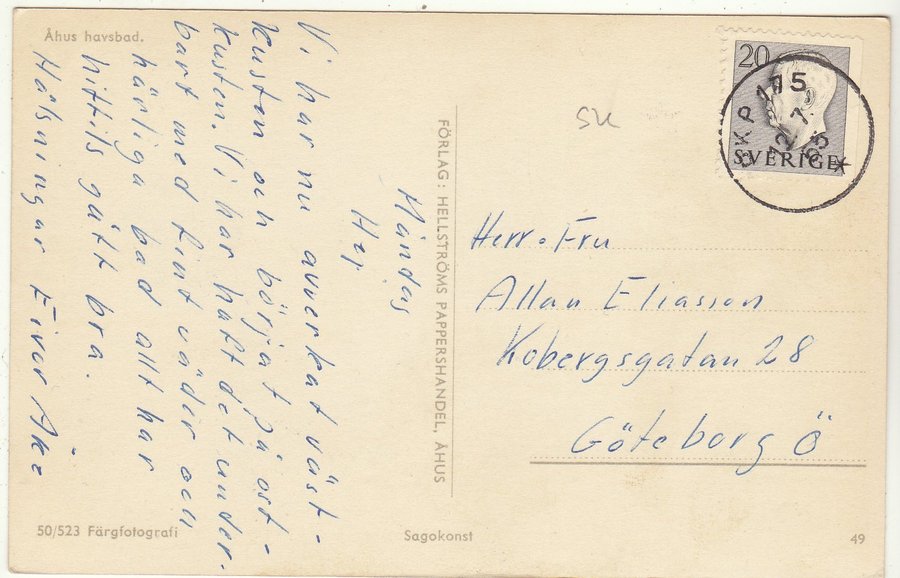 Åhus havsbad.
Måndag
Hej
Vi har nu avverkat väst-
kusten och börjat på ost-
kusten. Vi har haft det under-
bart med fint väder och
härliga bad allt har
hittils gått bra.
Hälsningar Eivor Åke
FÖRLAG: HELLSTRÖMS PAPPERSHANDEL, ÅHUS
su
20
SVERIGE
PKP 175
12 7
65
Herr o Fru
Allan Eliasson
Kobergsgatan 28
Göteborg Ö
50/523 Färgfotografi
Sagokonst
49